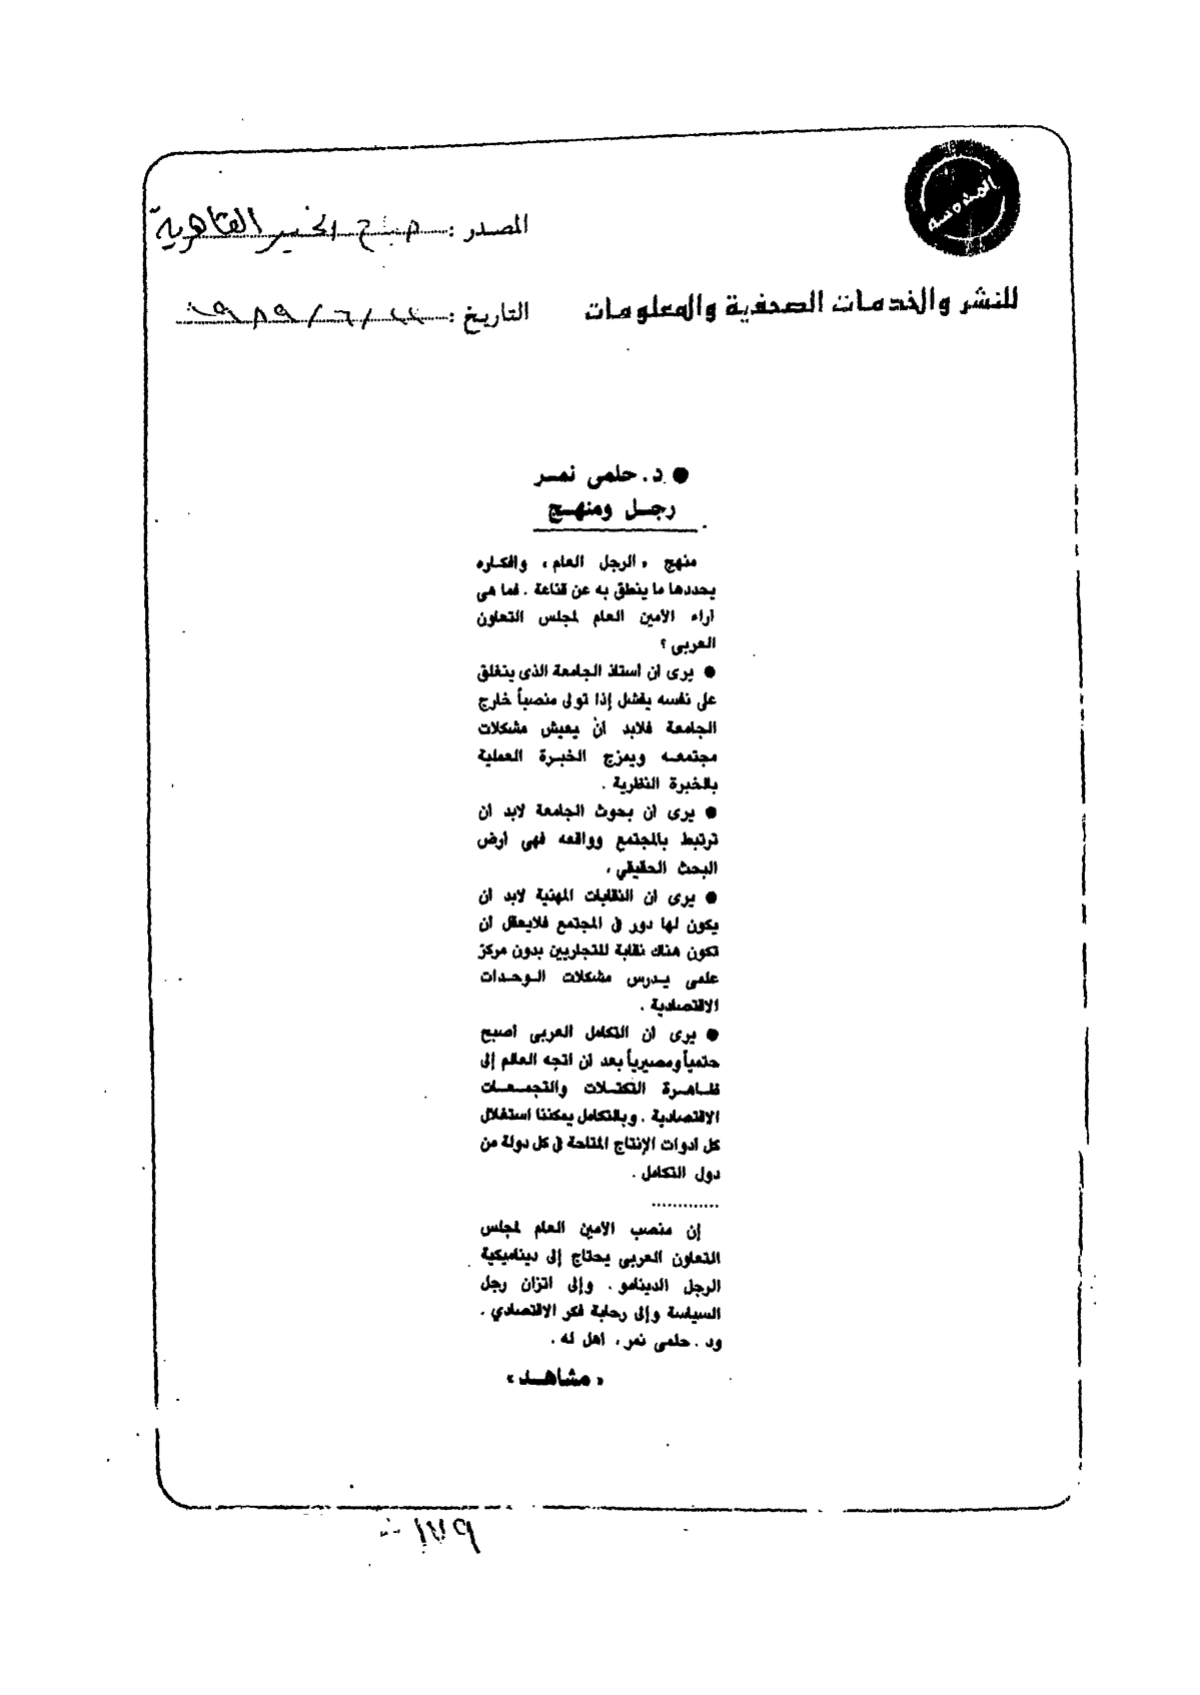 المحروسة
المصدر : صباح الخير القاهرية
للنشر والخدمات الصحفية والمعلومات
التاريخ : ٢٢/٦/١٩٨٩
● د. حلمى نمر
رجل ومنهج
منهج «الرجل العام» وافكاره
يحددها ما ينطق به عن قناعة . فما هى
آراء الأمين العام لمجلس التعاون
العربى ؟
● يرى ان استاذ الجامعة الذى ينغلق
على نفسه يفشل إذا تولى منصباً خارج
الجامعة فلابد أن يعيش مشكلات
مجتمعه ويمزج الخبرة العملية
بالخبرة النظرية .
● يرى ان بحوث الجامعة لابد ان
ترتبط بالمجتمع وواقعه فهى أرض
البحث الحقيقي .
● يرى ان النقابات المهنية لابد ان
يكون لها دور في المجتمع فلايعقل ان
تكون هناك نقابة للتجاريين بدون مركز
علمى يدرس مشكلات الوحدات
الاقتصادية .
● يرى ان التكامل العربى أصبح
حتمياً ومصيرياً بعد ان اتجه العالم إلى
ظاهرة التكتلات والتجمعات
الاقتصادية . وبالتكامل يمكننا استغلال
كل ادوات الإنتاج المتاحة في كل دولة من
دول التكامل .
.............
إن منصب الأمين العام لمجلس
التعاون العربى يحتاج إلى ديناميكية
الرجل الدينامو . وإلى اتزان رجل
السياسة وإلى رحابة فكر الاقتصادي .
ود . حلمى نمر، اهل له .
«مشاهد»